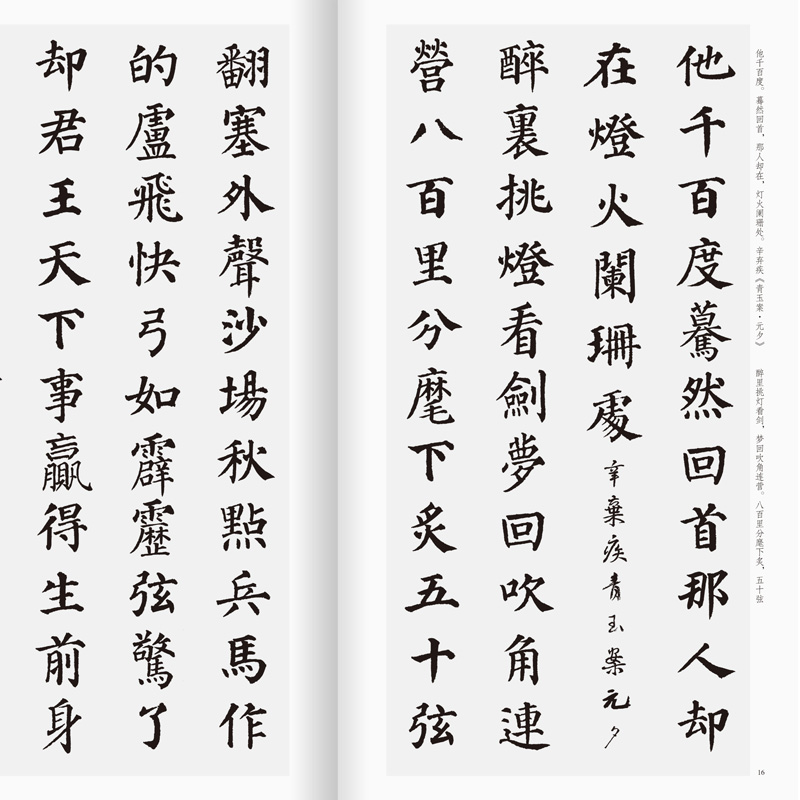 他千百度。蓦然回首，那人却在，灯火阑珊处。辛弃疾《青玉案·元夕》
醉里挑灯看剑，梦回吹角连营。八百里分麾下炙，五十弦
他千百度驀然回首那人却
在燈火闌珊處辛棄疾青玉案元夕
醉裏挑燈看劍夢回吹角連
營八百里分麾下炙五十弦
16
翻塞外聲沙場秋點兵馬作
的盧飛快弓如霹靂弦驚了
却君王天下事贏得生前身